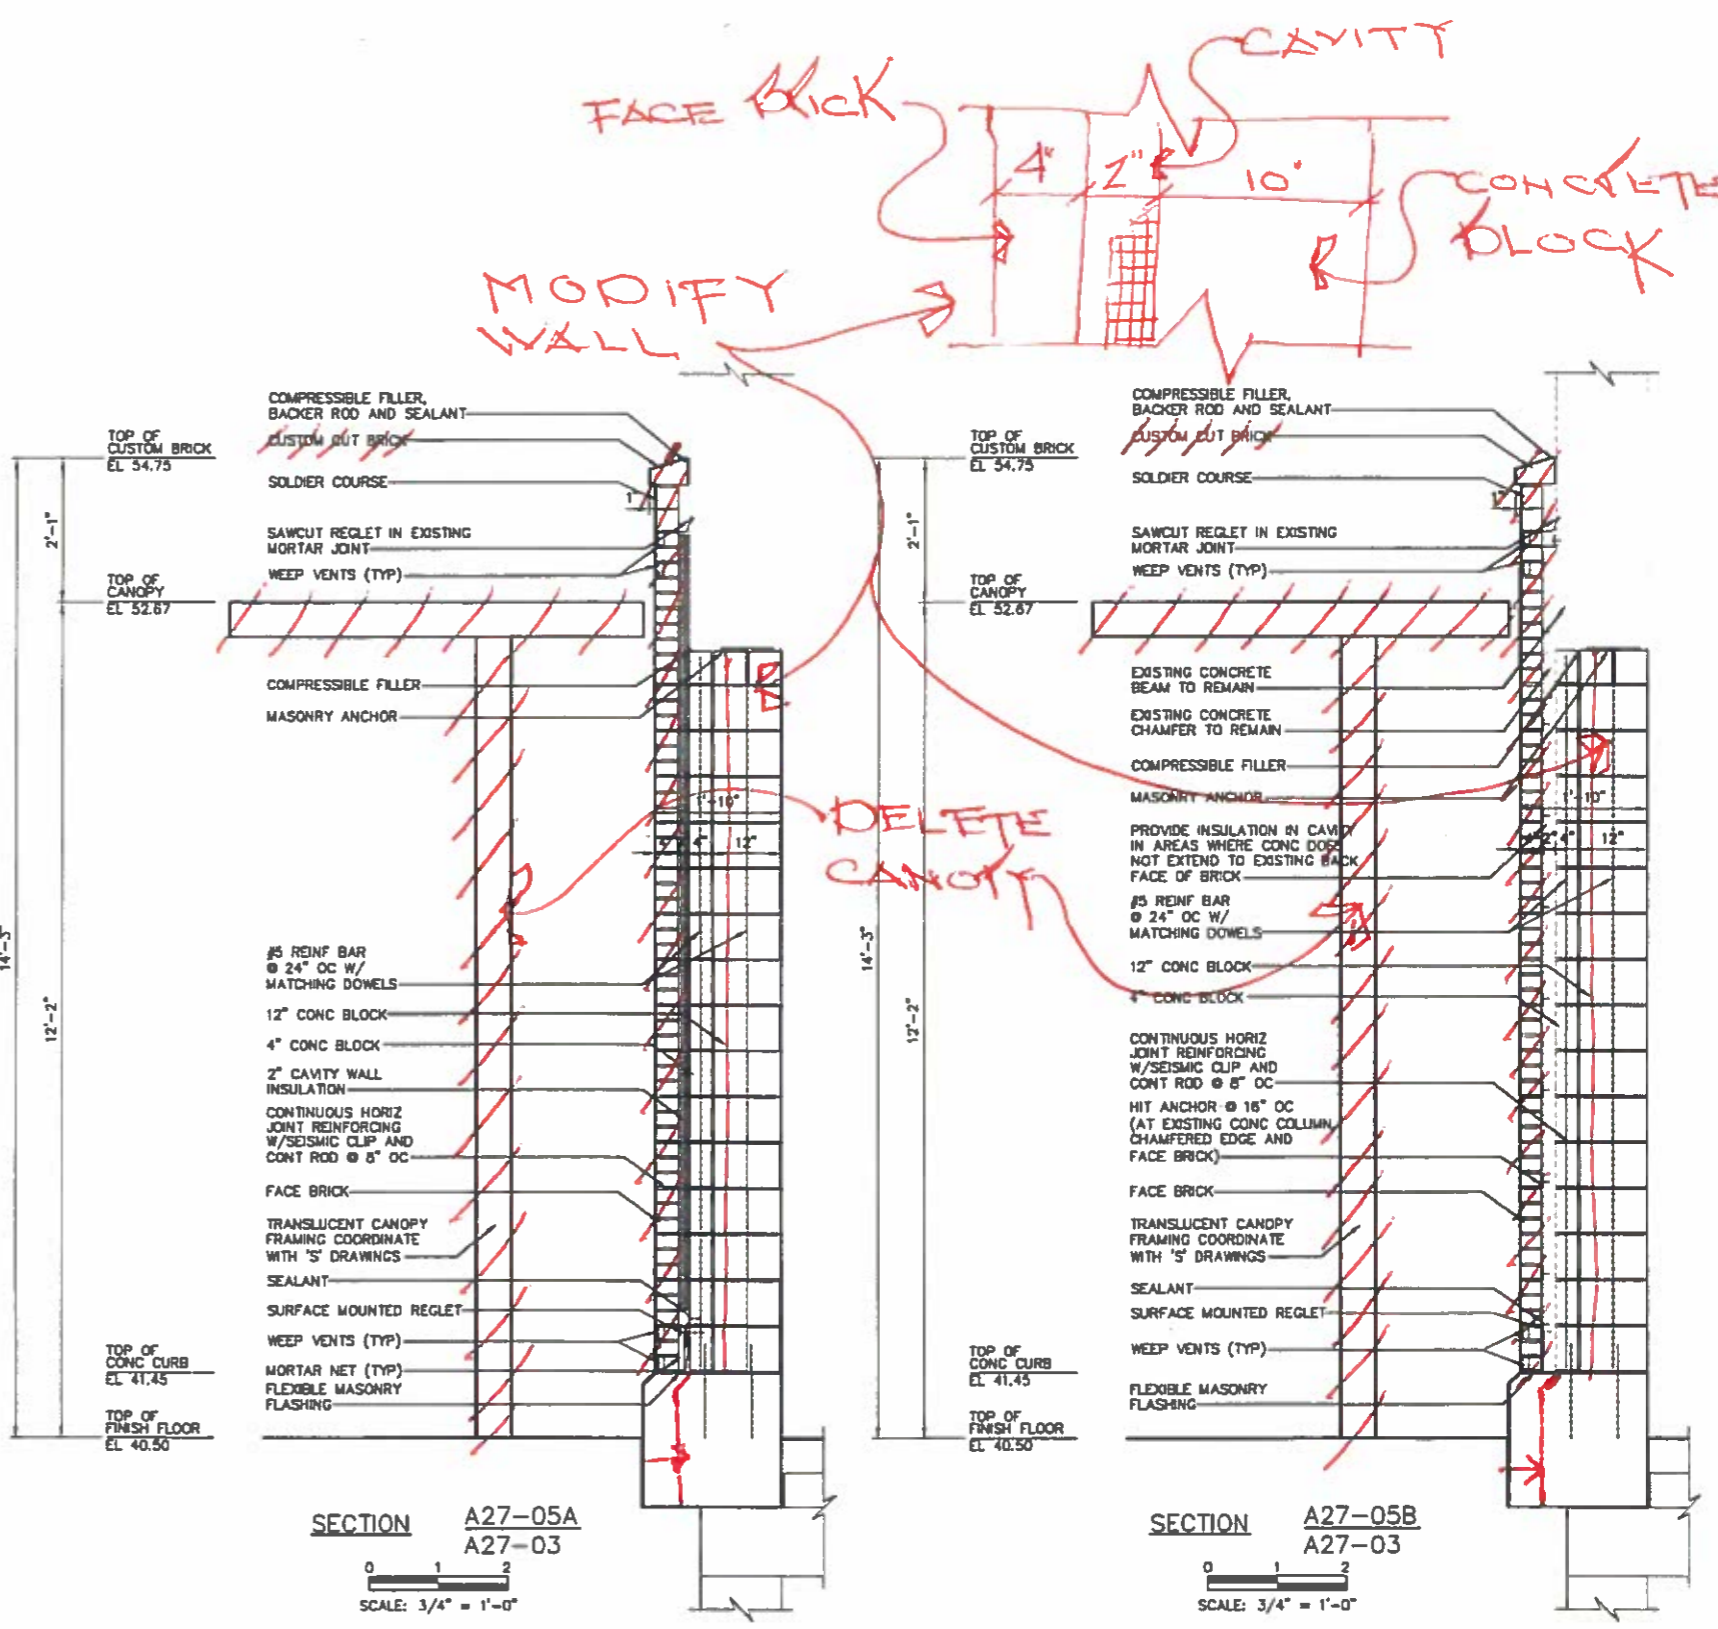 CAVITY
FACE BRICK
4"
2"
10"
CONCRETE
BLOCK
MODIFY
WALL
COMPRESSIBLE FILLER,
BACKER ROD AND SEALANT
CUSTOM CUT BRICK
TOP OF
CUSTOM BRICK
EL 54.75
SOLDIER COURSE
1"
2'-1"
SAWCUT REGLET IN EXISTING
MORTAR JOINT
WEEP VENTS (TYP)
TOP OF
CANOPY
EL 52.67
COMPRESSIBLE FILLER
MASONRY ANCHOR
1'-10"
4"
12"
DELETE
CANOPY
14'-3"
12'-2"
#5 REINF BAR
@ 24" OC W/
MATCHING DOWELS
12" CONC BLOCK
4" CONC BLOCK
2" CAVITY WALL
INSULATION
CONTINUOUS HORIZ
JOINT REINFORCING
W/SEISMIC CLIP AND
CONT ROD @ 8" OC
FACE BRICK
TRANSLUCENT CANOPY
FRAMING COORDINATE
WITH 'S' DRAWINGS
SEALANT
SURFACE MOUNTED REGLET
WEEP VENTS (TYP)
MORTAR NET (TYP)
FLEXIBLE MASONRY
FLASHING
TOP OF
CONC CURB
EL 41.45
TOP OF
FINISH FLOOR
EL 40.50
SECTION
A27-05A
A27-03
0 1 2
SCALE: 3/4" = 1'-0"
COMPRESSIBLE FILLER,
BACKER ROD AND SEALANT
CUSTOM CUT BRICK
TOP OF
CUSTOM BRICK
EL 54.75
SOLDIER COURSE
1"
2'-1"
SAWCUT REGLET IN EXISTING
MORTAR JOINT
WEEP VENTS (TYP)
TOP OF
CANOPY
EL 52.67
EXISTING CONCRETE
BEAM TO REMAIN
EXISTING CONCRETE
CHAMFER TO REMAIN
COMPRESSIBLE FILLER
MASONRY ANCHOR
1'-10"
2"
4"
12"
PROVIDE INSULATION IN CAVITY
IN AREAS WHERE CONC DOES
NOT EXTEND TO EXISTING BACK
FACE OF BRICK
14'-3"
12'-2"
#5 REINF BAR
@ 24" OC W/
MATCHING DOWELS
12" CONC BLOCK
4" CONC BLOCK
CONTINUOUS HORIZ
JOINT REINFORCING
W/SEISMIC CLIP AND
CONT ROD @ 8" OC
HIT ANCHOR @ 16" OC
(AT EXISTING CONC COLUMN
CHAMFERED EDGE AND
FACE BRICK)
FACE BRICK
TRANSLUCENT CANOPY
FRAMING COORDINATE
WITH 'S' DRAWINGS
SEALANT
SURFACE MOUNTED REGLET
WEEP VENTS (TYP)
FLEXIBLE MASONRY
FLASHING
TOP OF
CONC CURB
EL 41.45
TOP OF
FINISH FLOOR
EL 40.50
SECTION
A27-05B
A27-03
0 1 2
SCALE: 3/4" = 1'-0"